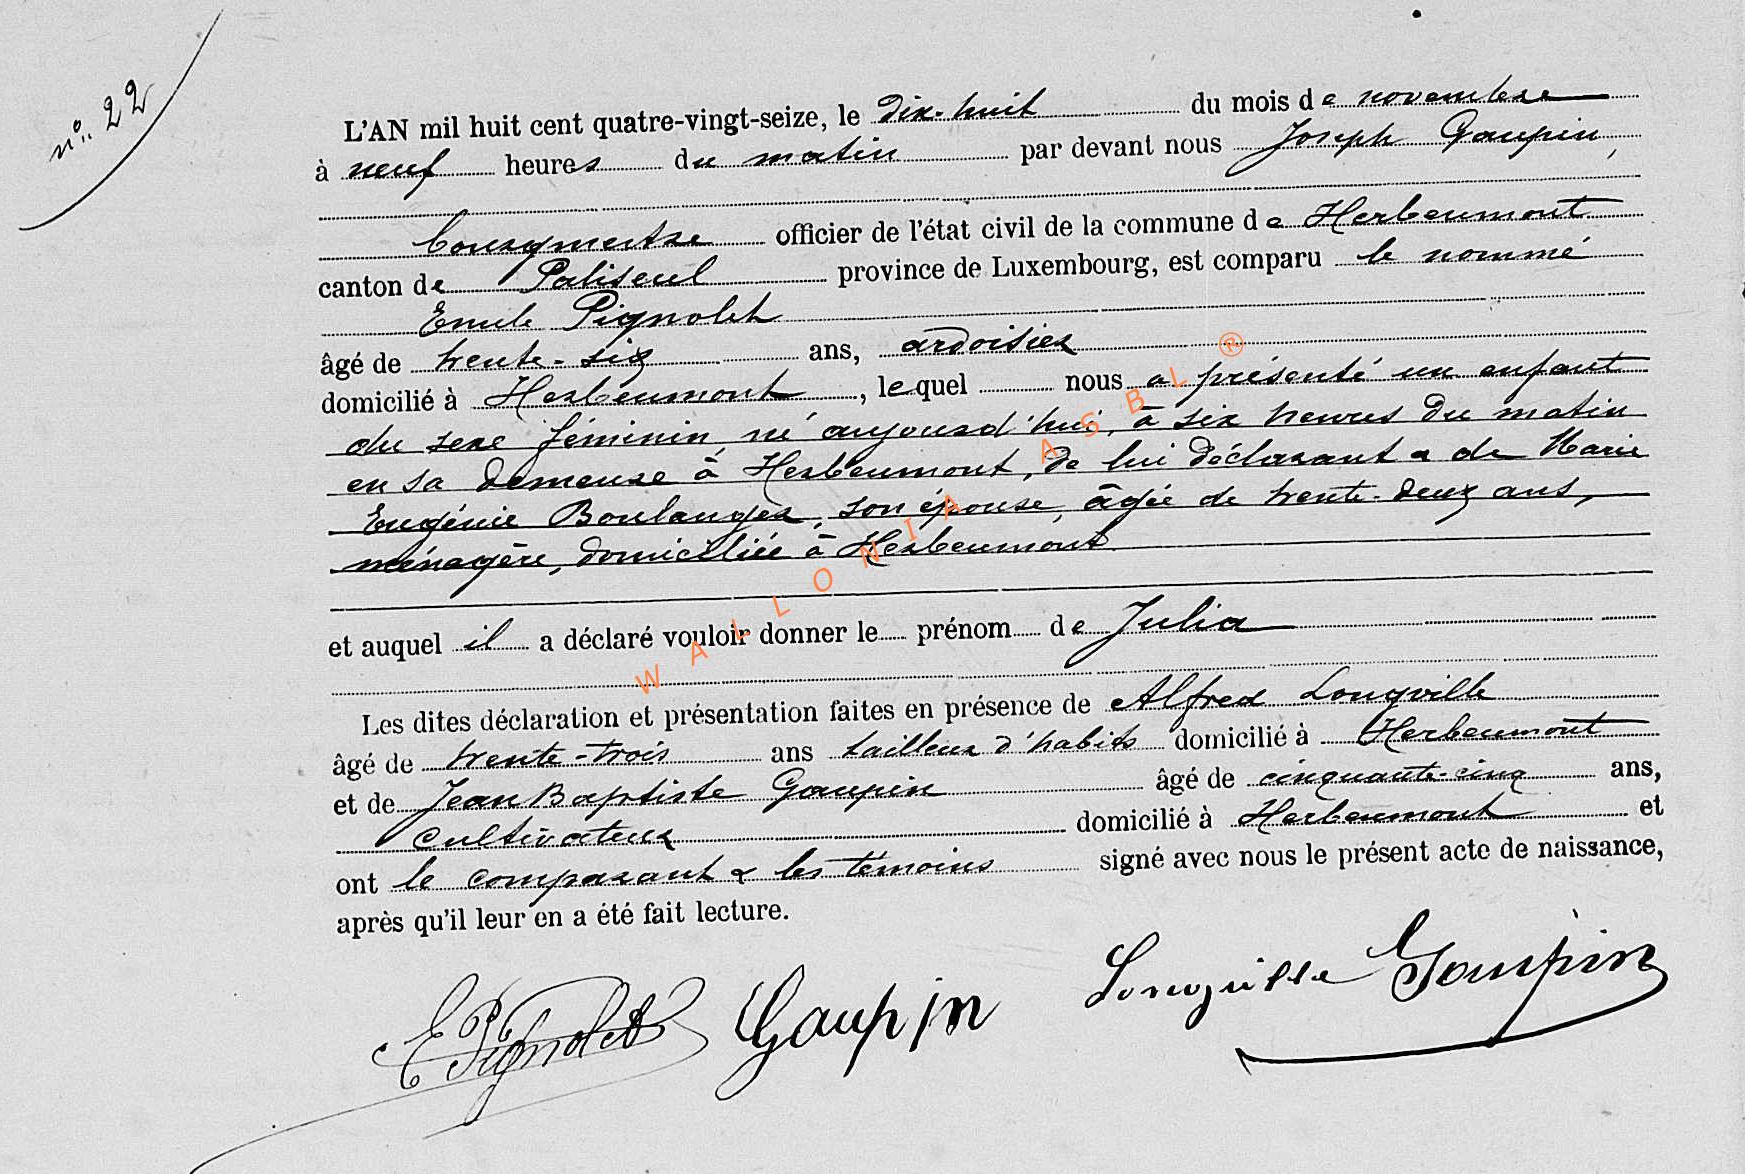 n°. 22
L'AN mil huit cent quatre-vingt-seize, le dix-huit du mois de novembre
à neuf heures du matin par devant nous Joseph Gaupin,
Bourgmestre officier de l'état civil de la commune de Herbeumont
canton de Paliseul province de Luxembourg, est comparu le nommé
Emile Pignolet
âgé de trente-six ans, ardoisier
domicilié à Herbeumont, lequel nous a présenté un enfant
du sexe féminin, né aujourd'hui, à six heures du matin
en sa demeure à Herbeumont, de lui déclarant & de Marie
Eugénie Boulanger, son épouse, âgée de trente-deux ans,
ménagère, domiciliée à Herbeumont
et auquel il a déclaré vouloir donner le prénom de Julia
Les dites déclaration et présentation faites en présence de Alfred Longville
âgé de trente-trois ans tailleur d'habits domicilié à Herbeumont
et de Jean Baptiste Gaupin âgé de cinquante-cinq ans,
cultivateur domicilié à Herbeumont et
ont le comparant & les témoins signé avec nous le présent acte de naissance,
après qu'il leur en a été fait lecture.
E Pignolet Gaupin Longville Gaupin
WALLONIA ASBL ®